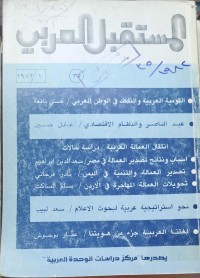 المستقبل العربي
١٩٨٢/١
٣٥
القومية العربية والتكتف في الوطن العربي /
عبد الناصر والنظام الاقتصادي / عادل حسين
انتقال العمالة العربية . دراسة حالات
اسباب ونتائج تصدير العمالة في مصر / سعد الدين ابراهيم
تصدير العمالة والتنمية في اليمن / نادر فرجاني
تحويلات العمالة المهاجرة في الاردن / بسام الساكت
نحو استراتيجية عربية لبحوث الاعلام / سعد لبيب
لغتنا العربية جزء من هويتنا /
يصدرها مركز دراسات الوحدة العربية